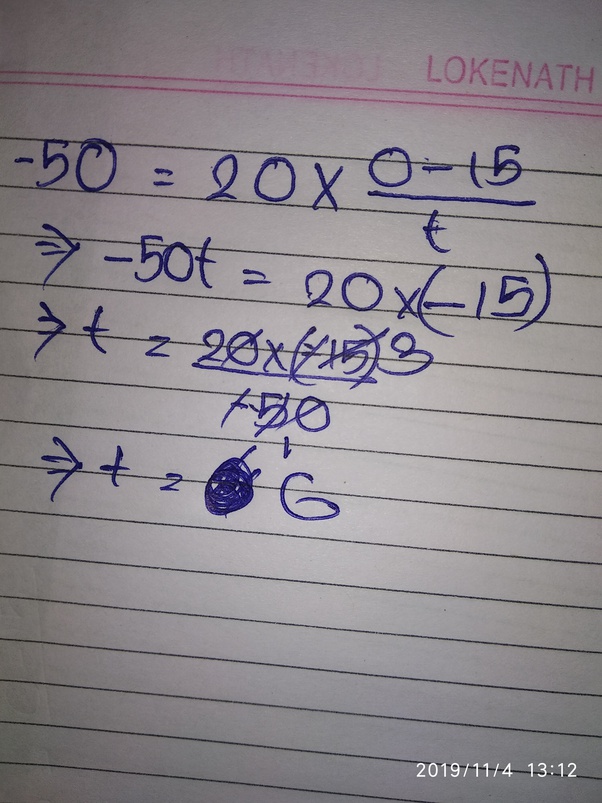 LOKENATH
-50 = 20 × 0-15/t
⇒ -50t = 20×(-15)
⇒ t = 20×(-15) 3/-50 1
⇒ t = 6
2019/11/4 13:12